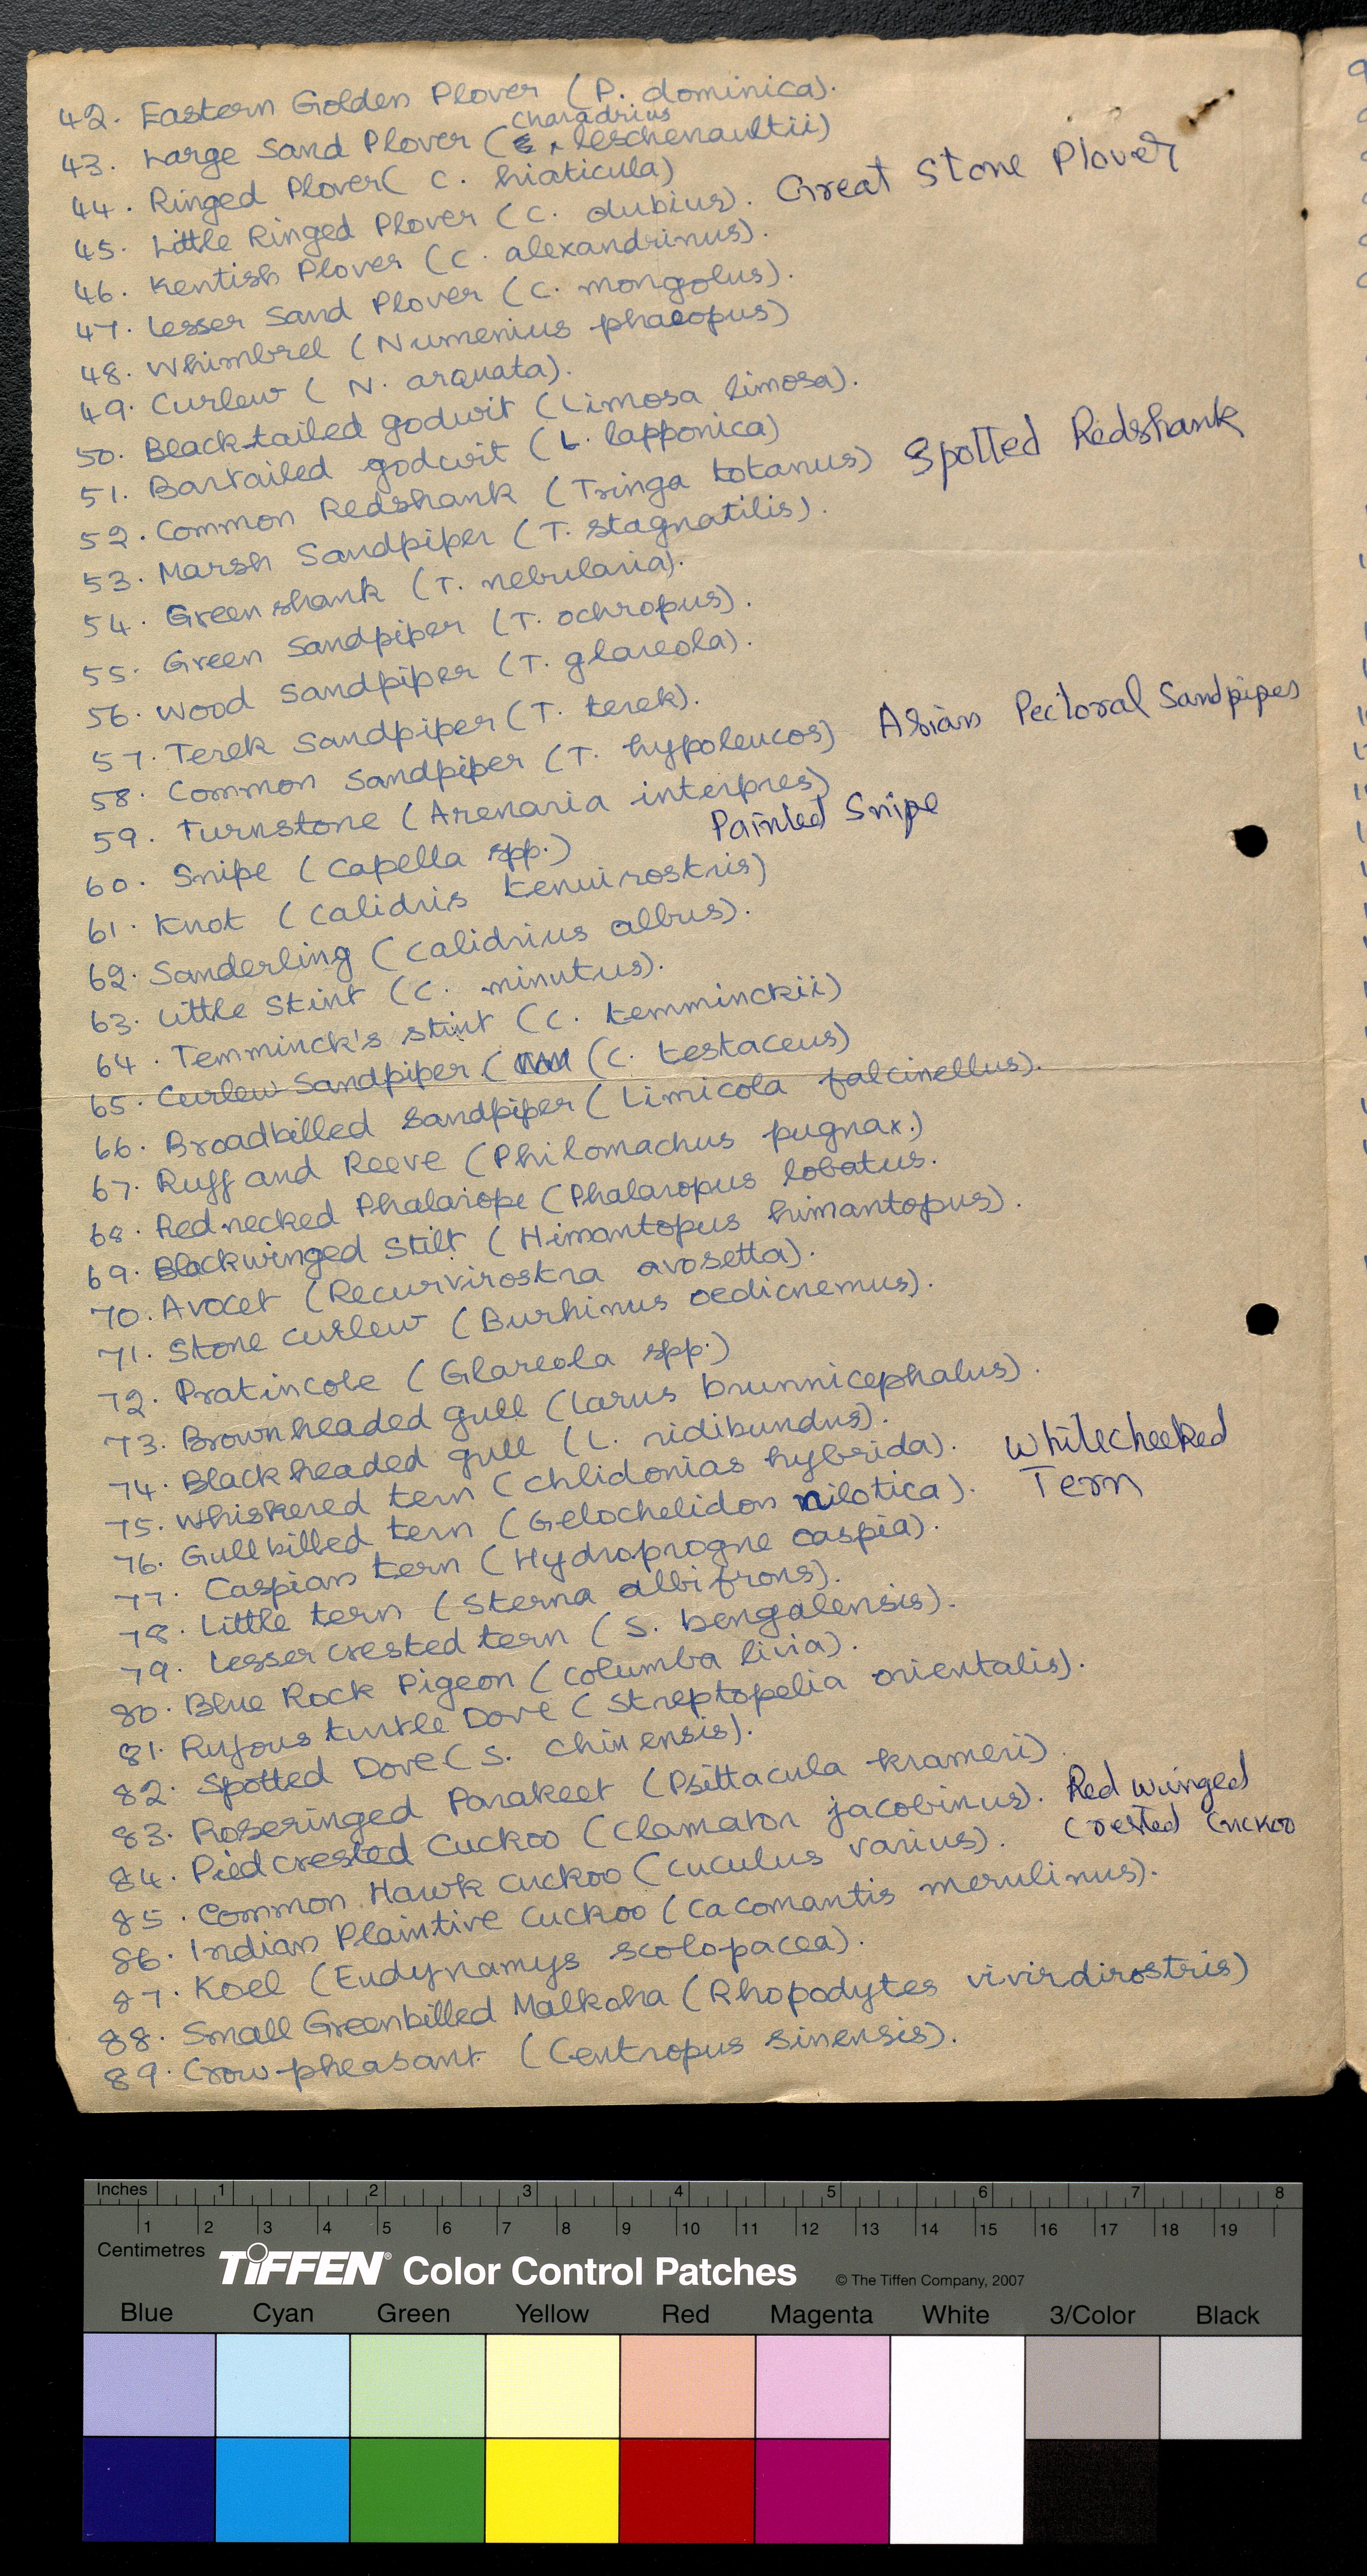 42. Eastern Golden Plover (P. dominica).
43. Large Sand Plover (Charadrius leschenaultii)
44. Ringed Plover( C. hiaticula)
45. Little Ringed Plover (C. dubius). Great Stone Plover
46. Kentish Plover (C. alexandrinus).
47. Lesser Sand Plover (C. mongolus).
48. Whimbrel (Numenius phaeopus)
49. Curlew ( N. arquata).
50. Black-tailed godwit (Limosa limosa).
51. Bartailed godwit (L. lapponica)
52. Common Redshank (Tringa totanus) Spotted Redshank
53. Marsh Sandpiper (T. stagnatilis).
54. Greenshank (T. nebularia).
55. Green Sandpiper (T. ochropus).
56. Wood Sandpiper (T. glareola).
57. Terek Sandpiper (T. terek).
58. Common Sandpiper (T. hypoleucos) Asian Pectoral Sandpipes
59. Turnstone (Arenaria interpres)
60. Snipe (Capella spp.) Painted Snipe
61. Knot (Calidris tenuirostris)
62. Sanderling (Calidrius albus).
63. Little Stint (C. minutus).
64. Temminck's stint (C. temminckii)
65. Curlew Sandpiper ( (C. testaceus)
66. Broadbilled Sandpiper (Limicola falcinellus).
67. Ruff and Reeve (Philomachus pugnax.)
68. Rednecked Phalarope (Phalaropus lobatus.
69. Blackwinged Stilt (Himantopus himantopus).
70. Avocet (Recurvirostra avosetta).
71. Stone curlew (Burhinus oedicnemus).
72. Pratincole (Glareola spp.)
73. Brownheaded gull (Larus brunnicephalus).
74. Blackheaded gull (L. ridibundus).
75. Whiskered tern (Chlidonias hybrida). Whitecheeked
76. Gullbilled tern (Gelochelidon nilotica). Tern
77. Caspian tern (Hydroprogne caspia).
78. Little tern (Sterna albifrons).
79. Lesser crested tern (S. bengalensis).
80. Blue Rock Pigeon (Columba livia).
81. Rufous turtle Dove (Streptopelia orientalis).
82. Spotted Dove (S. chinensis).
83. Roseringed Parakeet (Psittacula krameri). Red winged
84. Piedcrested Cuckoo (Clamator jacobinus). Crested Cuckoo
85. Common Hawk Cuckoo (Cuculus varius).
86. Indian Plaintive Cuckoo (Cacomantis merulinus).
87. Koel (Eudynamys scolopacea).
88. Small Greenbilled Malkoha (Rhopodytes vivirdirostris)
89. Crow-pheasant (Centropus sinensis).
Inches 1 2 3 4 5 6 7 8
1 2 3 4 5 6 7 8 9 10 11 12 13 14 15 16 17 18 19
Centimetres
TIFFEN® Color Control Patches © The Tiffen Company, 2007
Blue Cyan Green Yellow Red Magenta White 3/Color Black